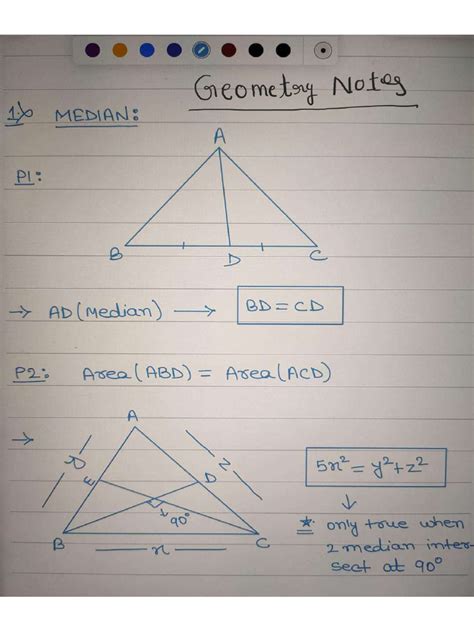 Geometry Notes
1) MEDIAN:
A
P1:
B
D
C
→ AD (Median) → BD = CD
P2: Area (ABD) = Area (ACD)
→
A
y
z
E
D
90°
B
x
C
5x² = y² + z²
↓
* only true when
2 median inter-
sect at 90°